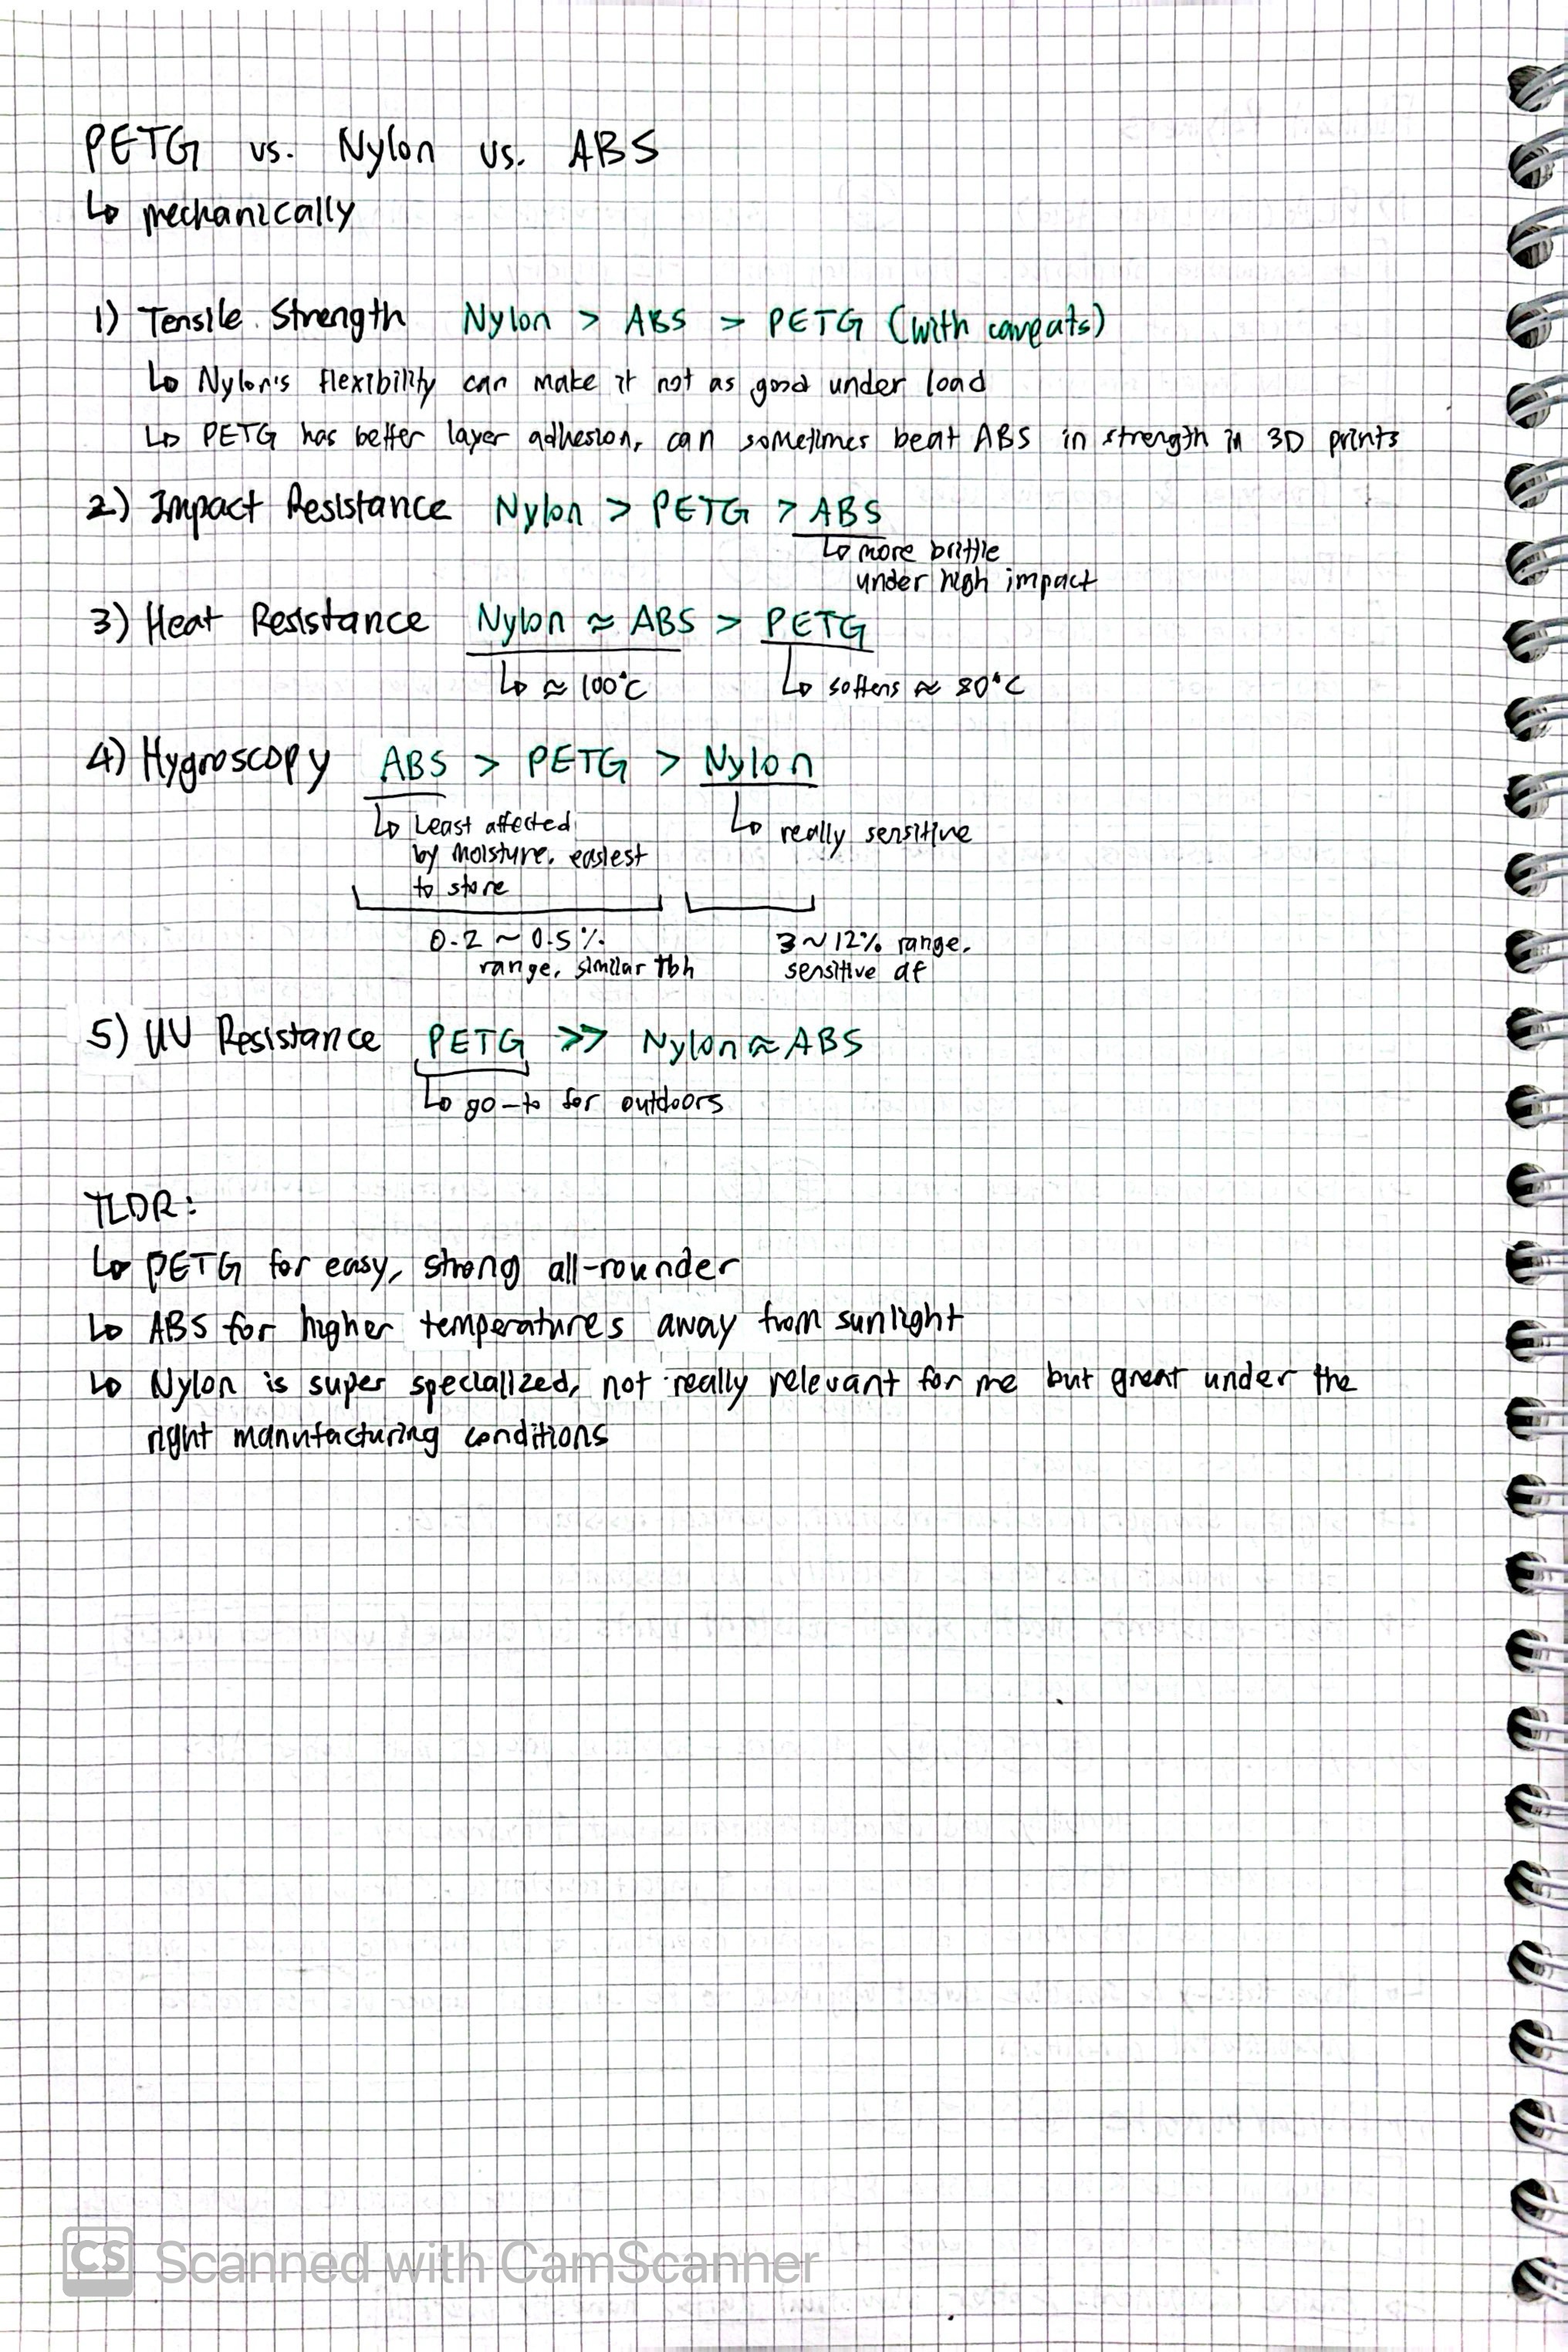 PETG vs. Nylon vs. ABS
↳ mechanically
1) Tensile Strength Nylon > ABS > PETG (with caveats)
↳ Nylon's flexibility can make it not as good under load
↳ PETG has better layer adhesion, can sometimes beat ABS in strength in 3D prints
2) Impact Resistance Nylon > PETG > ABS
↳ more brittle
under high impact
3) Heat Resistance Nylon ≈ ABS > PETG
↳ ≈ 100°C ↳ softens ≈ 80°C
4) Hygroscopy ABS > PETG > Nylon
↳ Least affected ↳ really sensitive
by moisture, easiest
to store
0.2 ~ 0.5% 3~12% range,
range, similar tbh sensitive af
5) UV Resistance PETG >> Nylon ≈ ABS
↳ go-to for outdoors
TLDR:
↳ PETG for easy, strong all-rounder
↳ ABS for higher temperatures away from sunlight
↳ Nylon is super specialized, not really relevant for me but great under the
right manufacturing conditions
CS Scanned with CamScanner